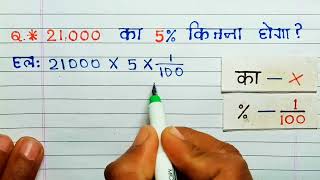 Q.* 21,000 का 5% कितना होगा?
हल: 21000 × 5 × 1/100
का – ×
% – 1/100